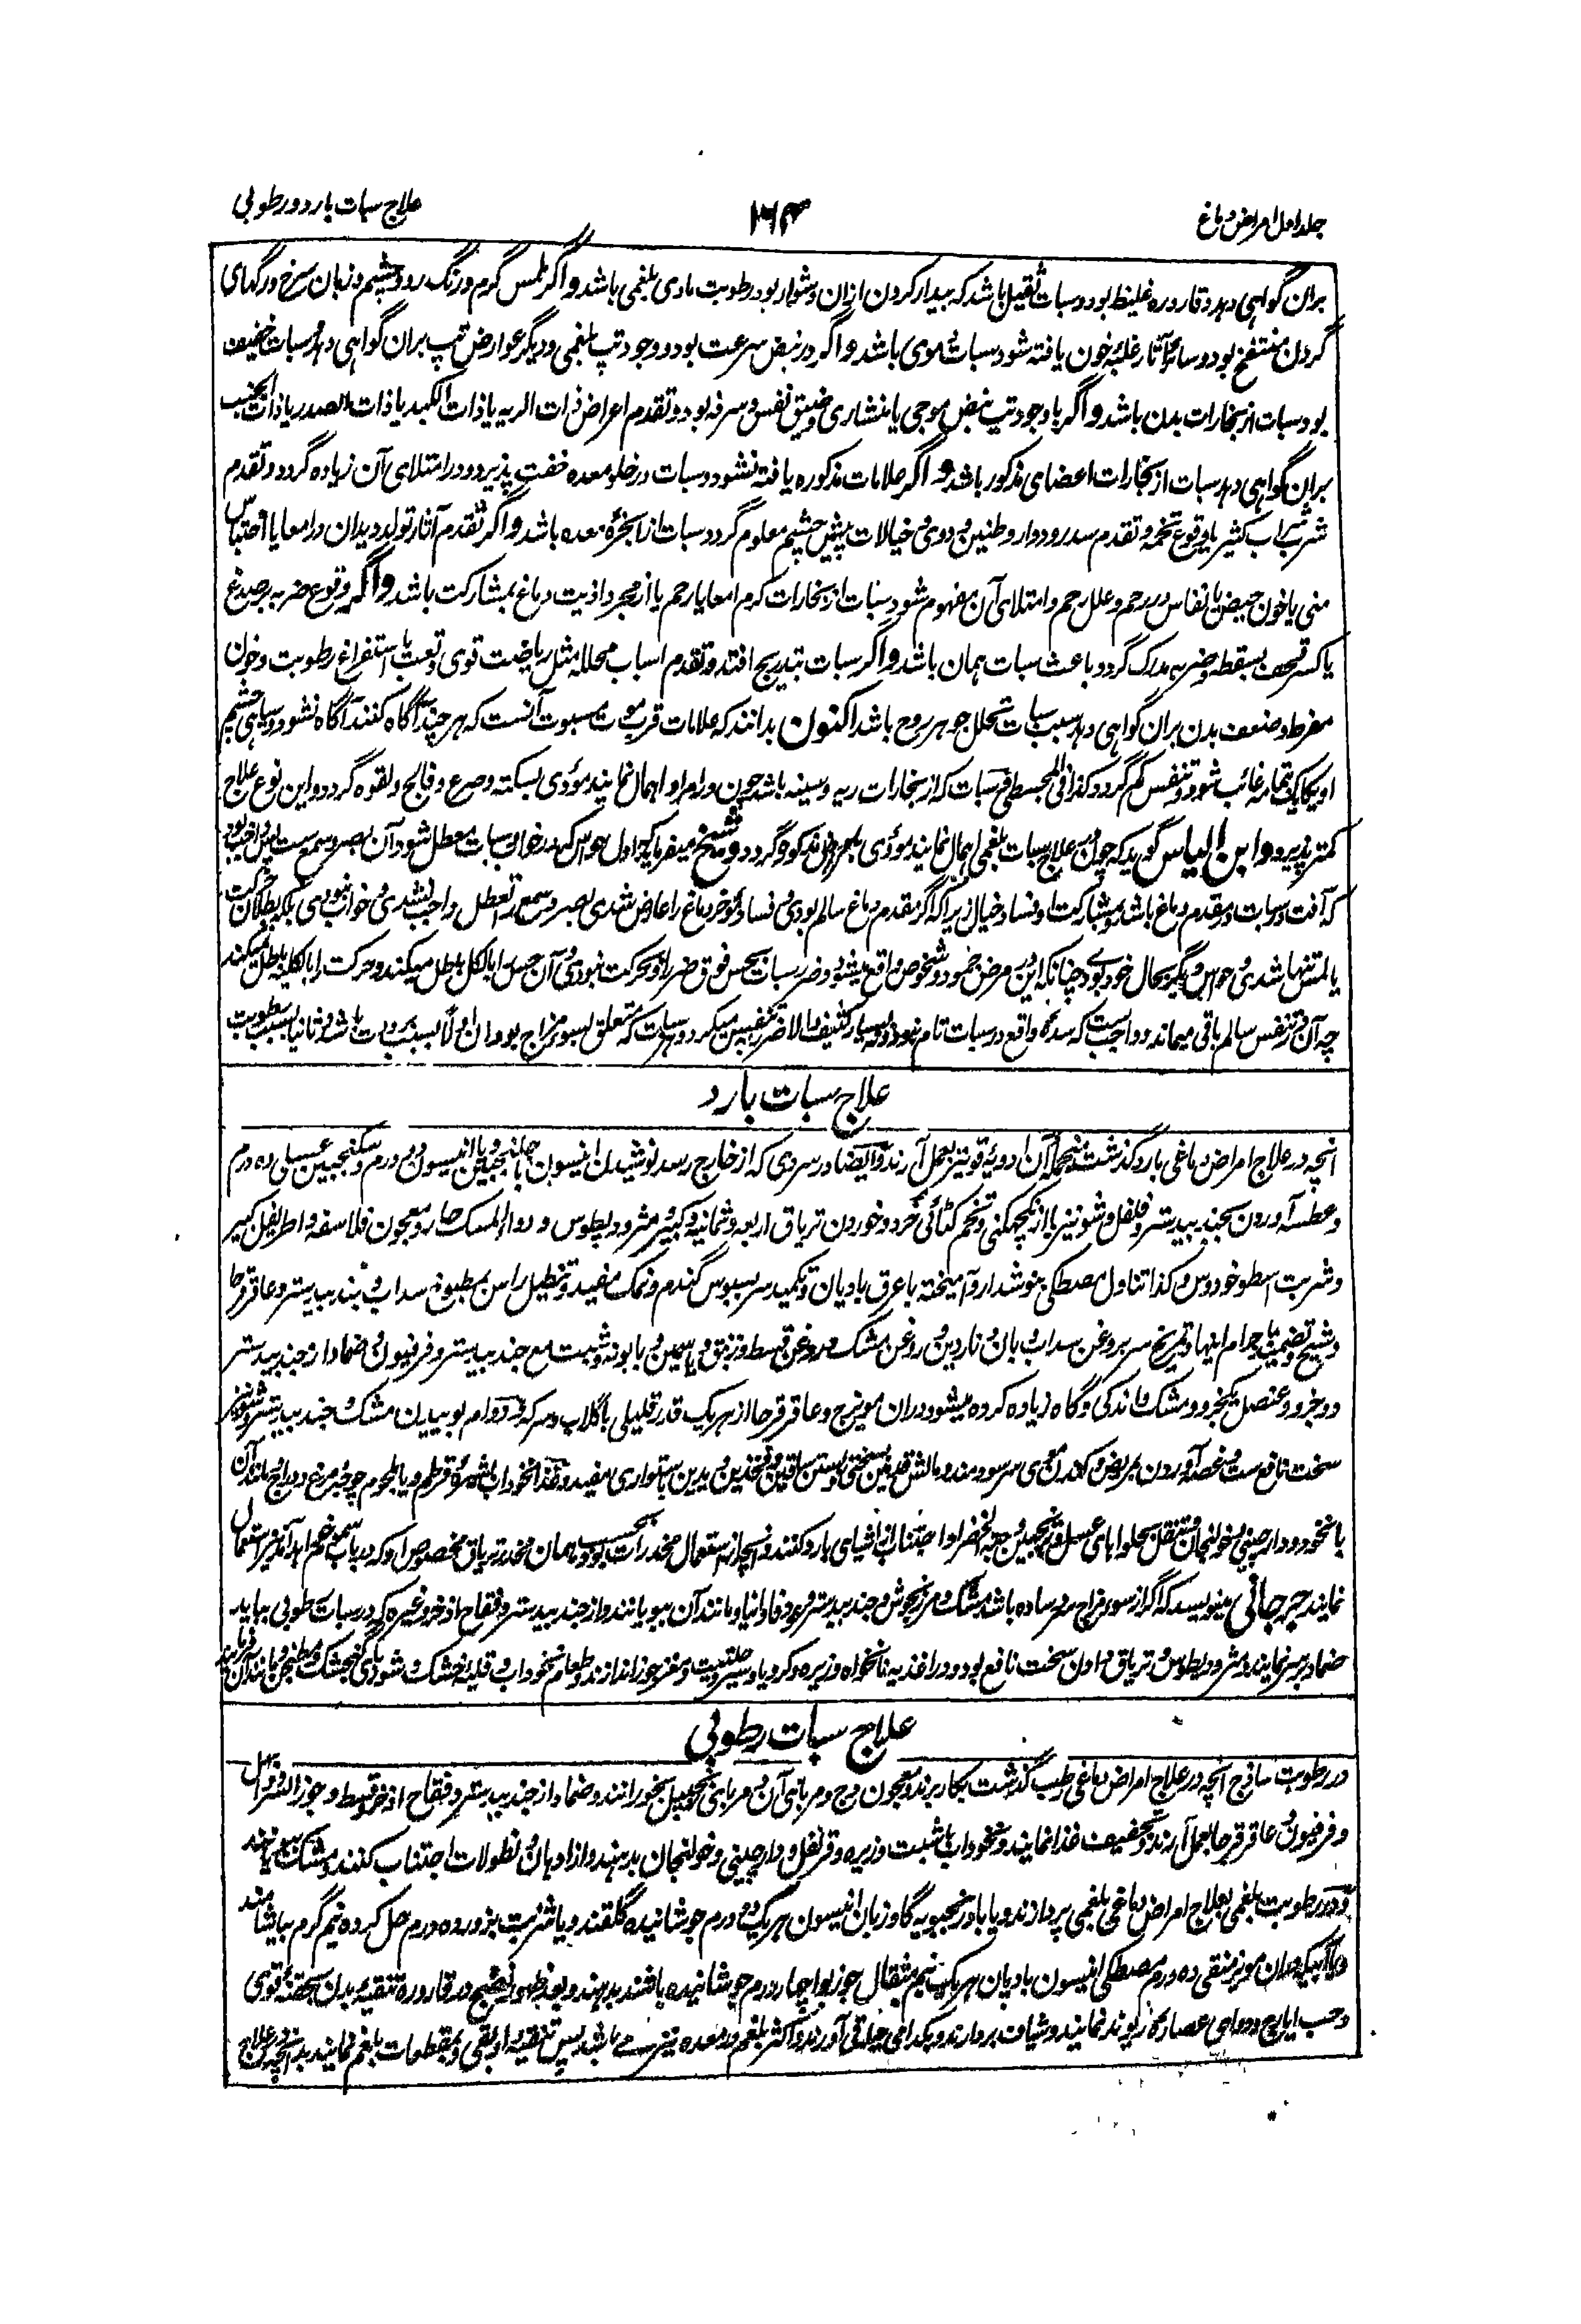 جلد اول امراض دماغ
۱۶۳
علاج سبات بارد و رطوبی
بران گواهی دهد و قاروره غلیظ بود و سبات ثقیل باشد که بیدار کردن ازان دشوار بود رطوبت مادی بلغمی باشد و اگر ملمس گرم و رنگ رو و چشم و زبان سرخ و رگهای
گردن منتفخ بود و سائر آثار غلبه خون یافته شود سبات دموی باشد و اگر در نبض سرعت بود و وجود تپ بلغمی و دیگر عوارض تپ بران گواهی دهد و سبات خفیف
بود سبات از بخارات بدن باشد و اگر باوجود تپ نبض موجی یا منشاری و ضیق نفس و سرفه بود و تقدم اعراض ذات الریه یا ذات الکبد یا ذات الصدر یا ذات الجنب
بران گواهی دهد سبات از بخارات اعضای مذکور باشد و اگر علامات مذکوره یافته نشود و سبات در خلو معده خفت پذیرد و در امتلای آن زیاده گردد و تقدم
شرب شراب کثیر یا وقوع تخمه و تقدم سدر و دوار و طنین و دوی و خیالات پیش چشم معلوم گردد سبات از ابخره معده باشد و اگر تقدم آثار تولد دیدان در امعا یا احتباس
منی یا خون حیض یا نفاس در رحم و علل رحم و امتلای آن مفهوم شود سبات از بخارات کرم امعا یا رحم یا از مجرد اذیت دماغ بمشارکت باشد و اگر وقوع ضربه بر صدغ
یا کسر قحف بسقطه و ضربه مدرک گردد باعث سبات همان باشد و اگر سبات بتدریج افتد و تقدم اسباب محلله مثل ریاضت قوی و تعب یا استفراغ رطوبت و خون
مفرط و ضعف بدن بران گواهی دهد سبب سبات تحلل جوهر روح باشد اکنون بدانند که علامات قرب موت مسبوت آنست که هر چند آگاه کنند آگاه نشود و سیاهی چشم
او یکایک تمامه غائب شود و تنفس کم گردد کذا فی المجسطی سبات که از بخارات ریه و سینه باشد چون در امر او اهمال نمایند مؤدی بسکته و صرع و فالج و لقوه گردد و این نوع علاج
کمتر پذیرد و ابن الیاس گوید که چون در علاج سبات بلغمی اهمال نمایند مؤدی بامراض مذکوره گردد و شیخ میفرماید که اول حواس که در خواب و سبات معطل شود آن بصر و سمع ست
که آفت در سبات در مقدم دماغ باشد و بمشارکت او فساد خیال زیراکه اگر مقدم دماغ سالم بودی و فساد مؤخر دماغ را عارض شدی بصر و سمع را تعطل واجب نشدی و خواب نبودی بلکه بطلان حرکت
یا لمس تنها شدی و حواس دیگر بحال خود بودی چنانکه این در مرض جمود و شخوص واقع میشود و ضرر سبات بحس فوق ضرر او بحرکت نبودی و آن حس را بالکل باطل میکند و حرکت را بالکلیه باطل نمیکند
چه آن در تنفس سالم باقی میماند و واجب ست که سده واقع در سبات تام نبود و نه بسیار کثیف والا ضرر بتنفس میکرد و سبات که متعلق بسوء مزاج بود آن اولا بسبب برودت باشد و ثانیا بسبب رطوبت
علاج سبات بارد
آنچه در علاج امراض دماغی بارد گذشت منجمله آن ادویه قویتر بعمل آرند و ایضا در سردی که از خارج رسد نوشیدن انیسون با جلنجبین یا انیسون دو درم و سکنجبین عسلی ده درم
و عطسه آوردن بجندبیدستر و فلفل و شونیز یا از نکچهکنی و تخم کٹائی خرد و خوردن تریاق اربعه و ثمانیه و کبیر و مثرودیطوس و دواء المسک حار و معجون فلاسفه و اطریفل کبیر
و شربت اسطوخودوس و کذا تناول مصطکی بنوشدارو آمیخته با عرق بادیان و تکمید سر بسبوس گندم و نمک مفید و تنطیل راس بمطبوخ سداب و جندبیدستر و عاقرقرحا
و شیح و تضمید باجرام اینها و تمریخ سر بروغن سداب و بان و ناردین و روغن مشک و روغن قسط و زنبق و یاسمین و بابونه و شبت مع جندبیدستر و فرفیون و ضماد از جندبیدستر
دو جزو و عنصل یکجزو و مشک اندکی و گاه زیاده کرده میشود دران مویزج و عاقرقرحا از هر یک قدر قلیلی با گلاب و سرکه و دوام بوییدن مشک و جندبیدستر و شونیز
سخت نافع ست و غصه آوردن بمریض و کندن موی سر سودمند و مالش قدمین بسختی و بستن ساقین و فخذین و یدین باستواری مفید و غذا نخوداب بشیره قرطم و یا لحوم چوجه مرغ و دراج مانند آن
با نخود و دارچینی و خولنجان و تنقل بحلواهای عسل و زنجبیل و حبه الخضرا و اجتناب از اشیای بارد کنند و آنچه از استعمال مخدرات بود بحسب همان مخدر تریاق مخصوص او که در باب سموم خواهد آمد استعمال
نمایند جرجانی مینویسد که اگر از سوء مزاج سرد ساده باشد مشک و مرزنجوش و جندبیدستر و عود فاوانیا و مانند آن ببویانند و از جندبیدستر و فقاح اذخر و غیره که در سبات رطوبی بیاید
ضماد بر سر نمایند و مثرودیطوس و تریاق دادن سخت نافع بود و در اغذیه نانخواه و زیره و کرویا و سیر و حلتیت و مغز جوز اندازند و طعام نخوداب و قلیه خشک و شوربای گنجشک و مطنجن و مانند آن فرمایند
علاج سبات رطوبی
در رطوبت ساذج آنچه در علاج امراض دماغی رطب گذشت بکار برند و معجون وج و مربای آن و مربای زنجبیل بخورانند و ضماد از جندبیدستر و فقاح اذخر و قسط و جوز السرو و ابهل
و فرفیون و عاقرقرحا بعمل آرند و تخفیف غذا نمایند و نخوداب با شبت و زیره و قرنفل و دارچینی و خولنجان بدهند و از ادهان و نطولات اجتناب کنند و مشک ببویانند
و در رطوبت بلغمی بعلاج امراض دماغی بلغمی پردازند و یا بادرنجبویه گاوزبان انیسون هر یک دو درم جوشانیده گلقند و یا شربت بزور ده درم حل کرده نیم گرم بیاشامند
و یا اینکه دران مویز منقی ده درم مصطکی انیسون بادیان هر یک نیم مثقال جوزبوا چهار درم جوشانیده با قند بدهند و بعد ظهور نضج در قاروره تنقیه بدن بحقنه قوی
و حب ایارج و دوای عصاره ریوند نمایند و شیاف بردارند و اکثر بلغم در معده نیز می باشد پس تنقیه او بقی و بمقطعات بلغم نمایند